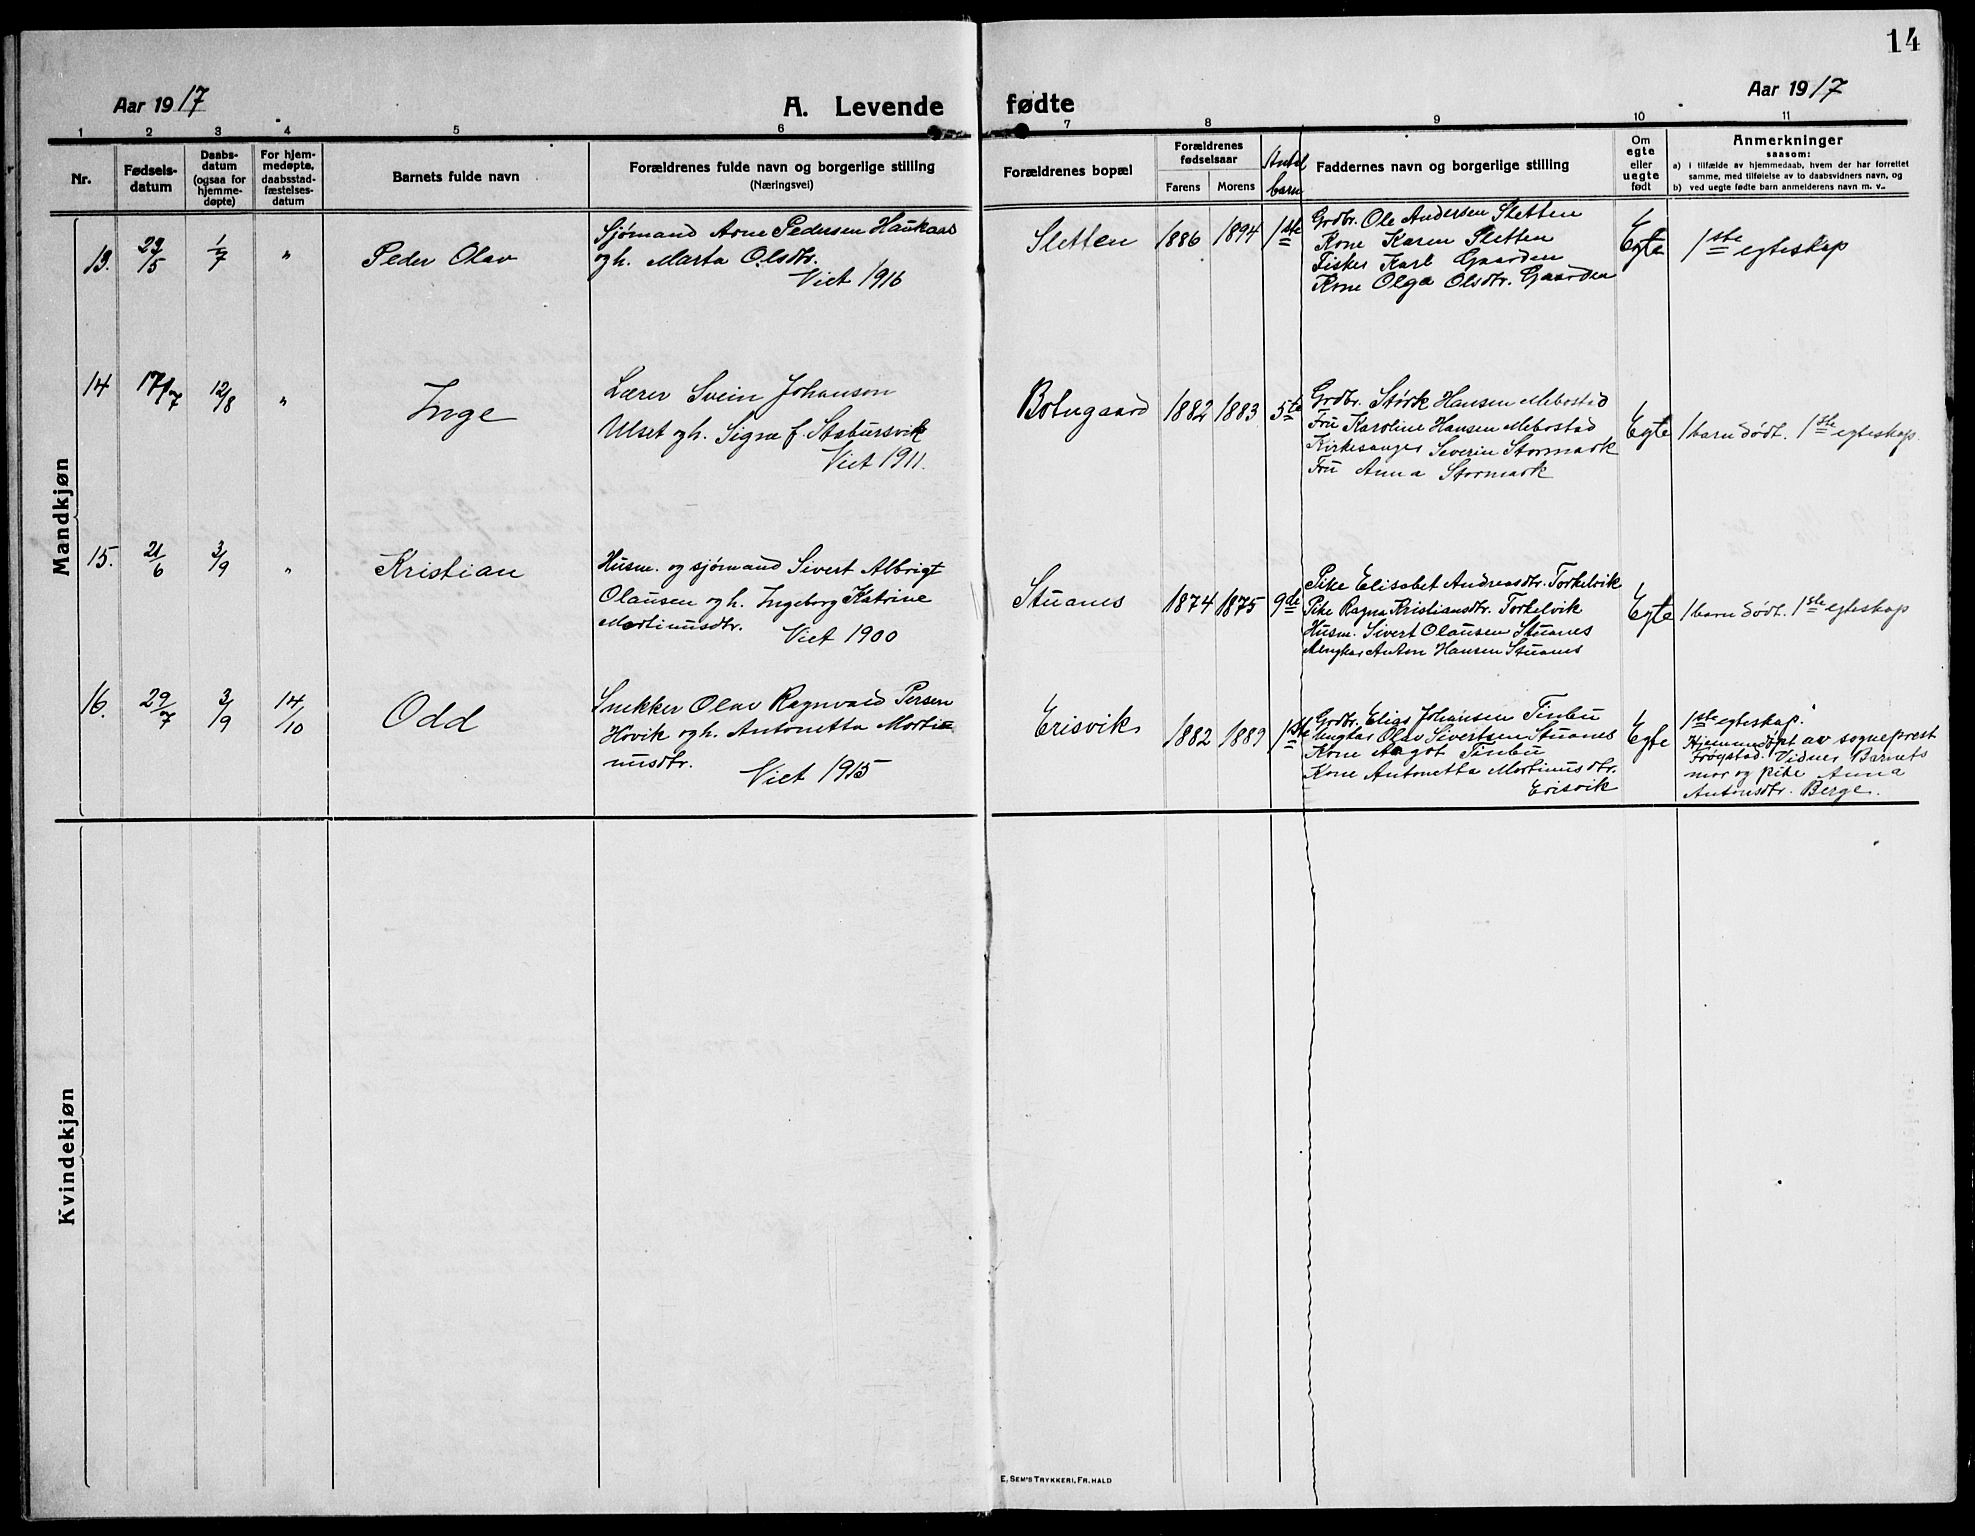 14
Aar 1917
A. Levende fødte
Aar 1917
1 2 3 4 5 6 7 8 9 10 11
Nr.
Fødsels-
datum
Daabs-
datum
(ogsaa for
hjemme-
døpte)
For hjem-
medøpte,
daabsstad-
fæstelses-
datum
Barnets fulde navn
Forældrenes fulde navn og borgerlige stilling
(Næringsvei)
Forældrenes bopæl
Forældrenes
fødselsaar
Farens Morens
Antal
barn
Faddernes navn og borgerlige stilling
Om
egte
eller
uegte
født
Anmerkninger
saasom:
a) i tilfælde av hjemmedaab, hvem der har forrettet
samme, med tilføielse av to daabsvidners navn, og
b) ved uegte fødte barn anmelderens navn m. v.
Mandkjøn
13. 29/5 1/7 " Peder Olav
Sjømand Arne Pedersen Haukaas
og h. Marta Olsdtr.
Viet 1916
Sletten 1886 1894 1ste
Grdbr. Ole Andersen Sletten
Kone Karen Sletten
Fisker Karl Gaarden
Kone Olga Olsdtr. Gaarden
Egte 1ste egteskap
14 17/7 12/8 " Inge
Lærer Svein Johanson
Ulset og h. Signe f. Stabursvik
Viet 1911.
Botngaard 1882 1883 5te
Grdbr. Størk Hansen Mebostad
Fru Karoline Hansen Mebostad
Kirkesanger Severin Stormark
Fru Anna Stormark
Egte 1 barn dødt. 1ste egteskap.
15. 21/6 3/9 " Kristian
Husm. og sjømand Sivert Albrigt
Olausen og h. Ingeborg Katrine
Martinusdtr. Viet 1900
Stuanes 1874 1875 9de
Pike Elisabet Andreasdtr. Torkelvik
Pike Ragna Kristiansdtr. Torkelvik
Husm. Sivert Olausen Stuanes
Ungkar Anton Hansen Stuanes
Egte 1 barn dødt. 1ste egteskap
16. 29/7 3/9 14/10 Odd
Snekker Olav Ragnvald Persen
Hovik og h. Antonetta Marti-
nusdtr. Viet 1915
Erisvik 1882 1889 1ste
Grdbr. Elias Johansen Tinbu
Ungkar Olav Sivertsen Stuanes
Kone Aagot Tinbu
Kone Antonetta Martinusdtr.
Erisvik
Egte
1ste egteskap.
Hjemmedøpt av sogneprest
Frøystad. Vidner Barnets
mor og pike Anna
Antonsdtr. Berge.
Kvindekjøn
E. SEM'S TRYKKERI, FR.HALD